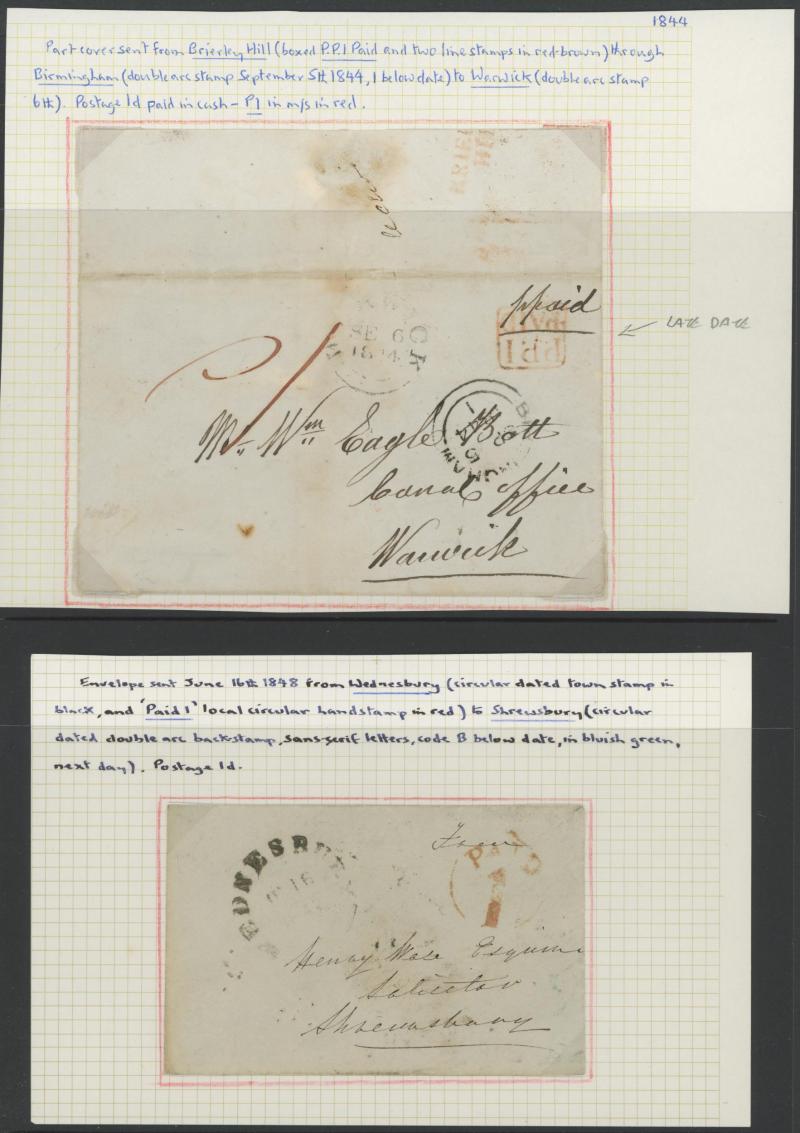 1844
Part cover sent from Brierley Hill (boxed P.P.1 Paid and two line stamps in red-brown) through
Birmingham (double arc stamp September 5th 1844, 1 below date) to Warwick (double arc stamp
6th). Postage 1d paid in cash - P1 in m/s in red.
ppaid
Pyd
1 PP
LATE DATE
SE 6
1844
1
Mr. Wm Eagle Bott
Canal Office
Warwick
Envelope sent June 16th 1848 from Wednesbury (circular dated town stamp in
black, and 'Paid 1' local circular handstamp in red) to Shrewsbury (circular
dated double arc backstamp, sans-serif letters, code B below date, in bluish green,
next day). Postage 1d.
EDNESB
16
PAID
1
Henry Esquire
Solicitor
Shrewsbury